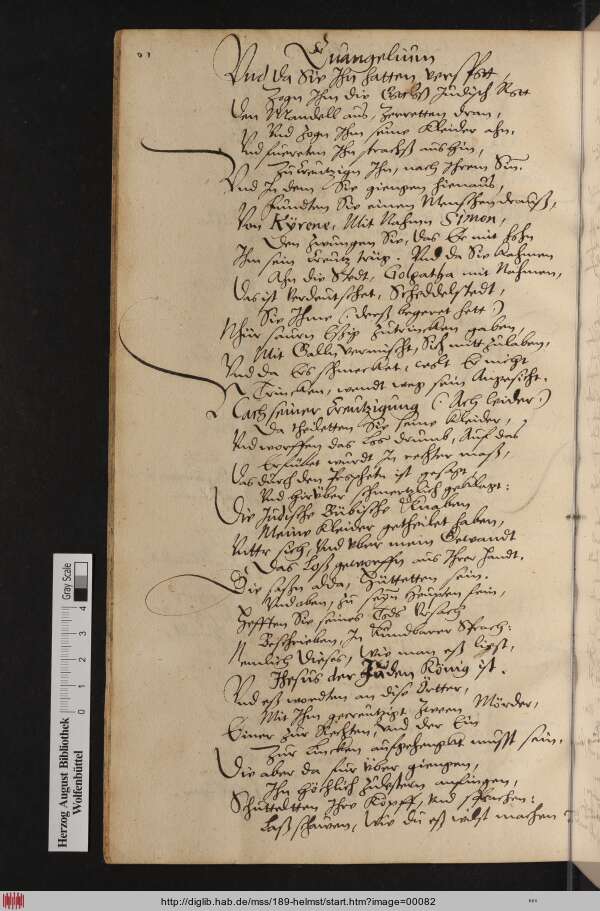 Euangelium
Vnd da Sie Ihn hatten verspott,
Zogn Ihm die Jüdisch Rott
Den Mandell aus, zerretten dran,
Vnd zogn Ihm seine Kleider ahn,
Vnd fuereten Ihn strackß aus hin,
Zu kreutzign Ihn, nach Ihrem Sin.
Vnd In dem Sie giengen hienaus,
Fundten Sie einen Menschen drauß,
Von Kÿrene, Mit Nahmen Simon,
Den zwungen Sie, das Er mit
Ihm sein Creutz trüg. Vnd da Sie kahmen
Ahn die Stedt, Golgatha mit Nahmen,
Das ist verdeutschet, Scheddelstedt,
Sie Ihme (: dieß begeret hett :)
Für saurn Eßig zutrincken gaben,
Mit Gallen vermischt, Sich mitt zulaben,
Vnd da Ers schmecket, wolt Er nicht
Trincken, wendt weg sein Angesicht.
Nach seiner Creutzigung (: Ach leider :)
Da theiletten Sie seine Kleider,
Vnd worffen das Loß drumb, Auf das
Erfüllet wurdt In rechter maß,
Das durch den Prophetn ist gesagt
Vnd hirüber schmertzlich geklagt:
Die Jüdische Bübische Knaben
Meine Kleider getheilet haben,
Vntter sich, Vnd vber mein Gewandt
Das Loß geworffn aus Ihrer Handt.
Sie saßn alda, Hüttetten sein.
Vnd oben, zu seyn Heupten fein,
Hefften Sie seines Tods Vrsach
Beschrieben, In kundbarer Sprach:
Nemlich dieses, Wie man eß ließt,
Jhesus der Jüden König ist.
Vnd eß wordten an diß Ortter,
Mit Ihm gecreutzigt zween Mörder,
Einer zur Rechten, vnd der Ein
Zur Lincken aufgehengkt must sein.
Die aber da fur vber giengen,
Ihn zulestern anfingen,
Schüttelten Ihre Köpff, vnd sprachen:
Laß schawen, Wie du eß wilst machen
Herzog August Bibliothek
Wolfenbüttel
Gray Scale
0 1 2 3 4
http://diglib.hab.de/mss/189-helmst/start.htm?image=00082